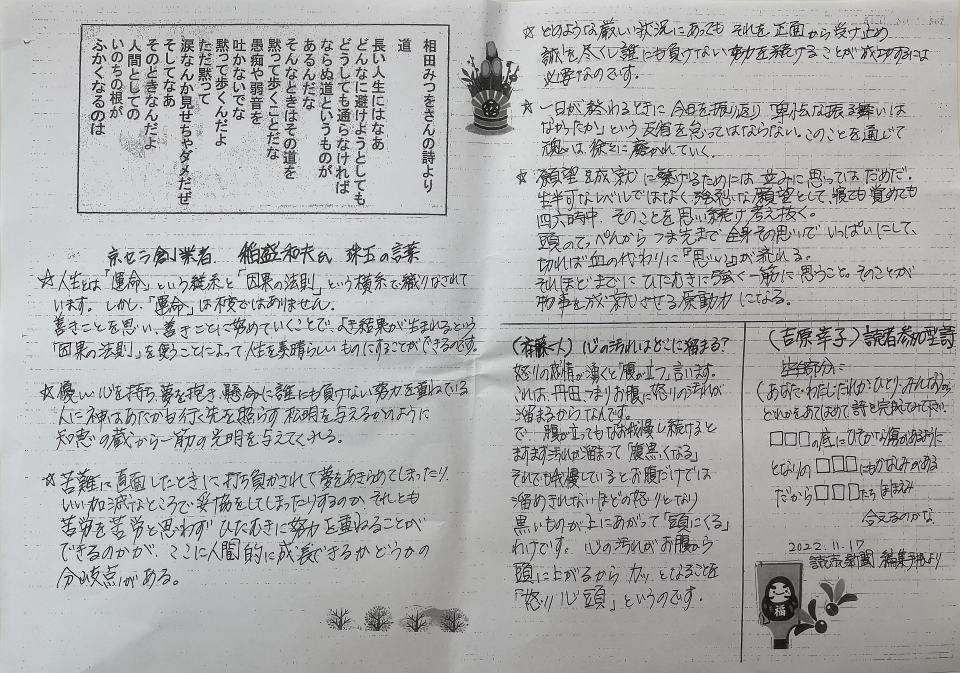 相田みつをさんの詩より
道
長い人生にはなあ
どんなに避けようとしても
どうしても通らなければ
ならぬ道というものが
あるんだな
そんなときはその道を
黙って歩くことだな
愚痴や弱音を
吐かないでな
黙って歩くんだよ
ただ黙って
涙なんか見せちゃダメだぜ
そしてなあ
そのときなんだよ
人間としての
いのちの根が
ふかくなるのは
京セラ創業者 稲盛和夫さん 珠玉の言葉
☆人生とは「運命」という縦糸と「因果の法則」という横糸で織りなされて
います。しかし、「運命」は不変ではありません。
善きことを思い、善きことに努めていくことで、よき結果が生まれるという
「因果の法則」を使うことによって人生を素晴らしいものにすることができるのです。
☆優しい心を持ち、夢を抱き、懸命に誰にも負けない努力を重ねている
人に神はあたかも行く先を照らす松明を与えるかのように
知恵の蔵から一筋の光明を与えてくれる。
☆苦難に直面したときに打ち負かされて夢をあきらめてしまったり、
いい加減なところで妥協をしてしまったりするのか、それとも
苦労を苦労と思わず ひたむきに努力を重ねることが
できるのかが、ここに人間的に成長できるかどうかの
分岐点がある。
☆どのような厳しい状況にあっても それを正面から受け止め
誠を尽くし誰にも負けない努力を続けることが成功するには
必要なのです。
☆一日が終わるときに今日を振り返り「卑怯な振る舞いは
なかったか」という反省を怠ってはならない。このことを通じて
魂は徐々に磨かれていく。
☆願望を成就に繋げるためには並みに思ってはだめだ。
生半可なレベルではなく強烈な願望として、寝ても覚めても
四六時中、そのことを思い続け考え抜く。
頭のてっぺんからつま先まで全身その思いでいっぱいにして、
切れば血の代わりに「思い」が流れる。
それほどまでにひたむきに強く一筋に思うこと。そのことが
物事を成就させる原動力になる。
(斎藤一人) 心の汚れはどこに溜まる?
怒りの感情が湧くと「腹が立つ」と言います。
これは、丹田つまりお腹に怒りの汚れが
溜まるからなんです。
で、腹が立ってもなお我慢し続けると
ますます汚れが溜まって「腹黒く」なる
それでも我慢しているとお腹だけでは
溜めきれないほどの怒りとなり
黒いものが上にあがって「頭にくる」
わけです。心の汚れがお腹から
頭に上がるから カッとなることを
「怒り心頭」というのです。
(吉原幸子) 読者参加型詩
(あなた・わたし・だれか・ひとり・みんな)から
どれかをあてはめて詩を完成させて下さい
□□□の底にひそかな傷があるように
となりの□□□にもかなしみがある
だから□□□たち ほほえみ
合えるのかな
2022.11.17
読売新聞 編集手帳より
福